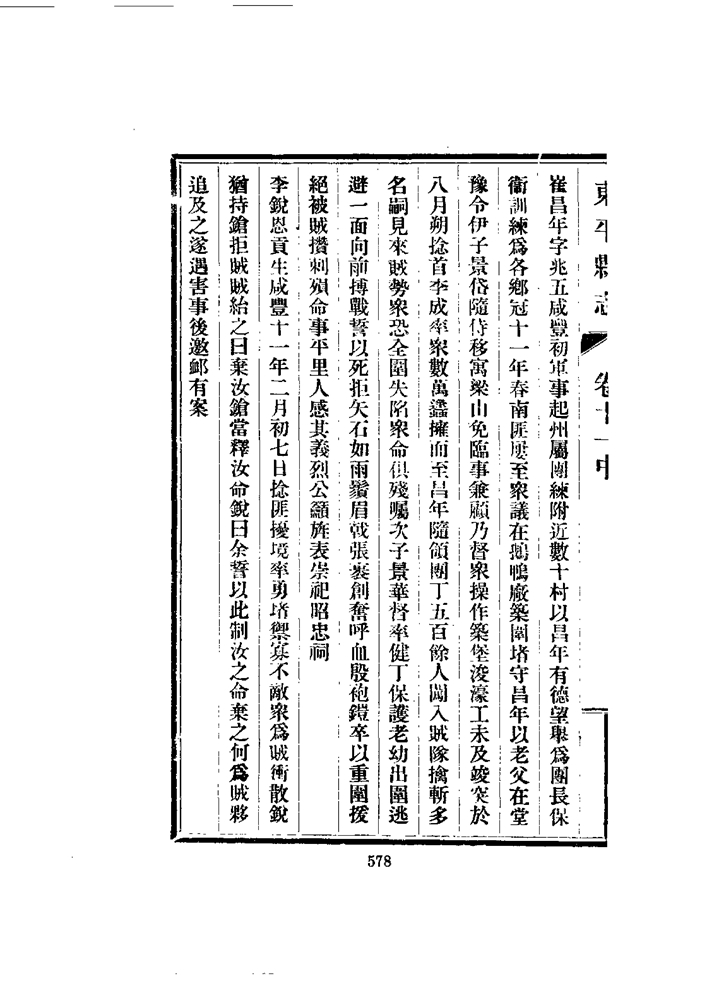 東平縣志 卷十一中
崔昌年字兆五咸豐初軍事起州屬團練附近數十村以昌年有德望舉爲團長保
衞訓練爲各鄉冠十一年春南匪屢至衆議在鵝鴨廠築圍堵守昌年以老父在堂
豫令伊子景岱隨侍移寓梁山免臨事兼顧乃督衆操作築堡浚濠工未及竣突於
八月朔捻首李成率衆數萬蠭擁而至昌年隨領團丁五百餘人闖入賊隊擒斬多
名嗣見來賊勢衆恐全圍失陷衆命俱殘囑次子景華督率健丁保護老幼出圍逃
避一面向前搏戰誓以死拒矢石如雨鬚眉戟張裹創奮呼血殷袍鎧卒以重圍援
絕被賊攢刺殞命事平里人感其義烈公籲旌表崇祀昭忠祠
李銳恩貢生咸豐十一年二月初七日捻匪擾境率勇堵禦寡不敵衆爲賊衝散銳
猶持鎗拒賊賊紿之曰棄汝鎗當釋汝命銳曰余誓以此制汝之命棄之何爲賊夥
追及之遂遇害事後邀卹有案
578